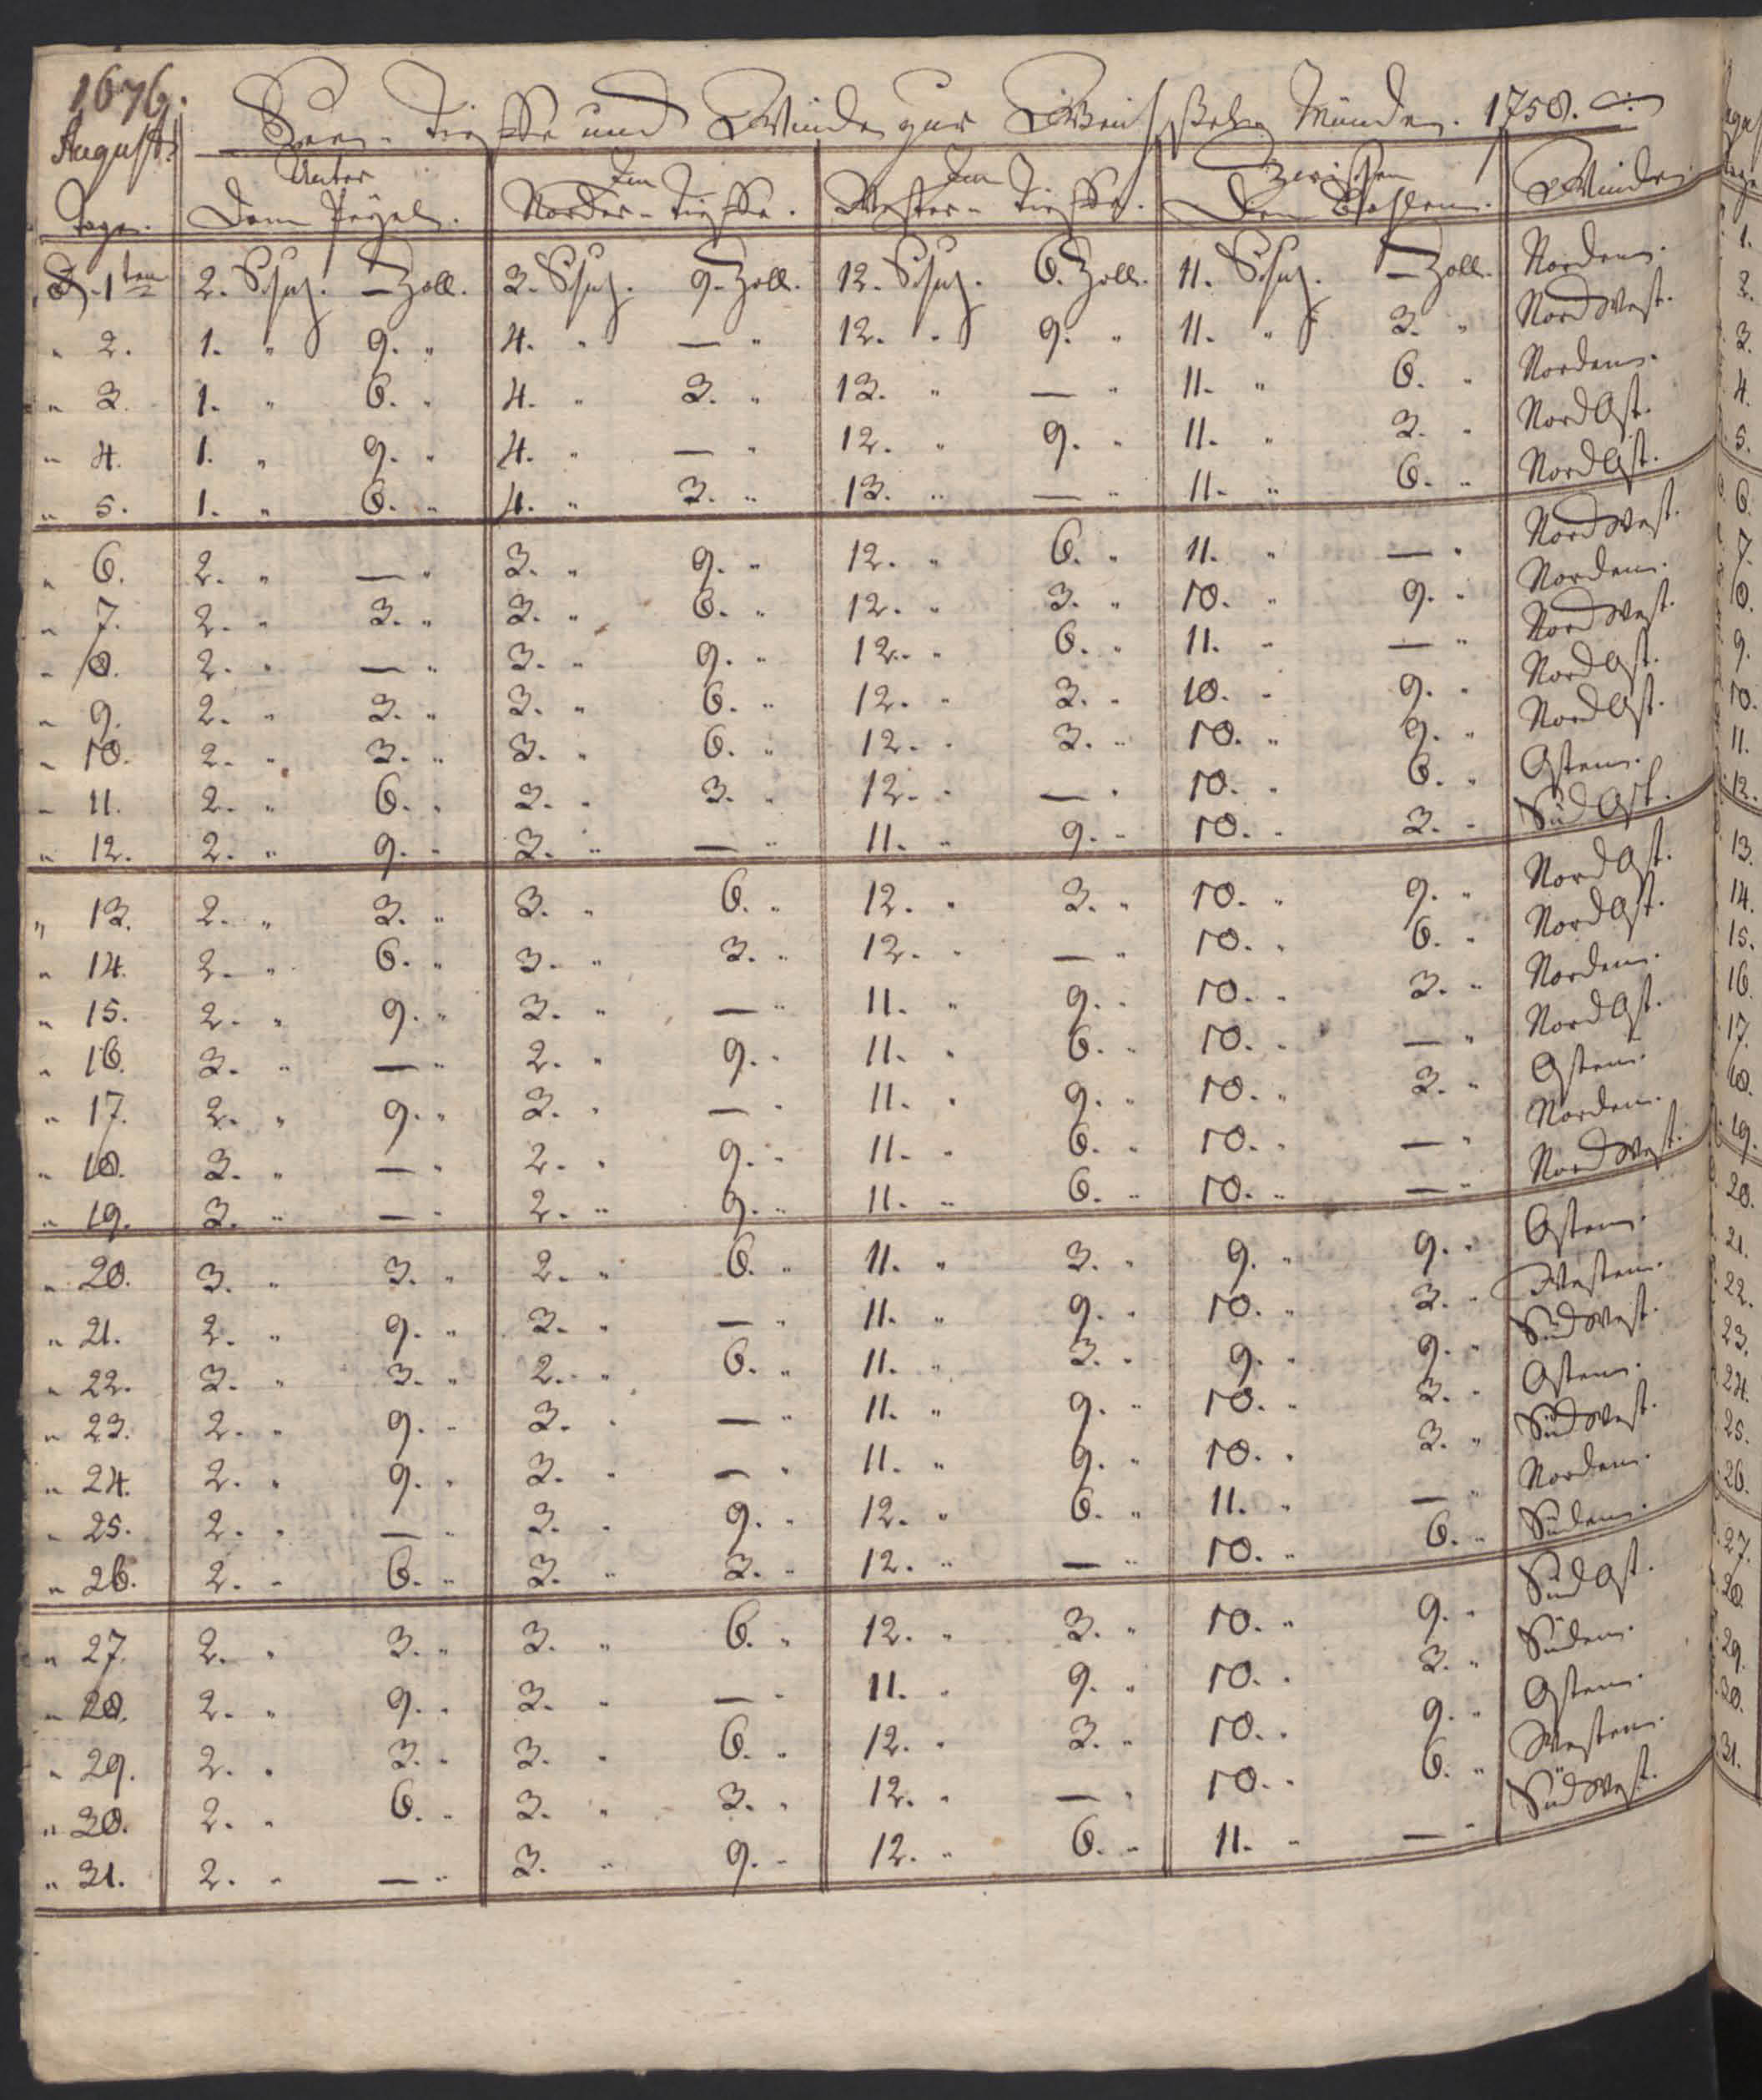 1676.
August:
See- Tieffe und Winde zur Weichsel Münde. 1758.
Tage. Unter dem Pegel. Im Norder-Tieffe. Im Wester-Tieffe. Zwischen den Pfahlen. Winde.
D. 1ten 2. Schuh. — Zoll. 3. Schuh. 9. Zoll. 12. Schuh. 6. Zoll. 11. Schuh. — Zoll. Norden.
" 2. 1. " 9. " 4. " — " 12. " 9. " 11. " 3. " NordWest.
" 3. 1. " 6. " 4. " 3. " 13. " — " 11. " 6. " Norden.
" 4. 1. " 9. " 4. " — " 12. " 9. " 11. " 3. " NordOst.
" 5. 1. " 6. " 4. " 3. " 13. " — " 11. " 6. " NordOst.
" 6. 2. " — " 3. " 9. " 12. " 6. " 11. " — " NordWest.
" 7. 2. " 3. " 3. " 6. " 12. " 3. " 10. " 9. " Norden.
" 8. 2. " — " 3. " 9. " 12. " 6. " 11. " — " NordWest.
" 9. 2. " 3. " 3. " 6. " 12. " 3. " 10. " 9. " NordOst.
" 10. 2. " 3. " 3. " 6. " 12. " 3. " 10. " 9. " NordOst.
" 11. 2. " 6. " 3. " 3. " 12. " — " 10. " 6. " Osten.
" 12. 2. " 9. " 3. " — " 11. " 9. " 10. " 3. " SüdOst.
" 13. 2. " 3. " 3. " 6. " 12. " 3. " 10. " 9. " NordOst.
" 14. 2. " 6. " 3. " 3. " 12. " — " 10. " 6. " NordOst.
" 15. 2. " 9. " 3. " — " 11. " 9. " 10. " 3. " Norden.
" 16. 3. " — " 2. " 9. " 11. " 6. " 10. " — " NordOst.
" 17. 2. " 9. " 3. " — " 11. " 9. " 10. " 3. " Osten.
" 18. 3. " — " 2. " 9. " 11. " 6. " 10. " — " Norden.
" 19. 3. " — " 2. " 9. " 11. " 6. " 10. " — " NordWest.
" 20. 3. " 3. " 2. " 6. " 11. " 3. " 9. " 9. " Osten.
" 21. 2. " 9. " 3. " — " 11. " 9. " 10. " 3. " Westen.
" 22. 3. " 3. " 2. " 6. " 11. " 3. " 9. " 9. " SüdWest.
" 23. 2. " 9. " 3. " — " 11. " 9. " 10. " 3. " Osten.
" 24. 2. " 9. " 3. " — " 11. " 9. " 10. " 3. " SüdWest.
" 25. 2. " — " 3. " 9. " 12. " 6. " 11. " — " Norden.
" 26. 2. " 6. " 3. " 3. " 12. " — " 10. " 6. " Süden.
" 27. 2. " 3. " 3. " 6. " 12. " 3. " 10. " 9. " SüdOst.
" 28. 2. " 9. " 3. " — " 11. " 9. " 10. " 3. " Süden.
" 29. 2. " 3. " 3. " 6. " 12. " 3. " 10. " 9. " Osten.
" 30. 2. " 6. " 3. " 3. " 12. " — " 10. " 6. " Westen.
" 31. 2. " — " 3. " 9. " 12. " 6. " 11. " — " SüdWest.
1.
2.
3.
4.
5.
6.
7.
8.
9.
10.
11.
12.
13.
14.
15.
16.
17.
18.
19.
20.
21.
22.
23.
24.
25.
26.
27.
28.
29.
30.
31.